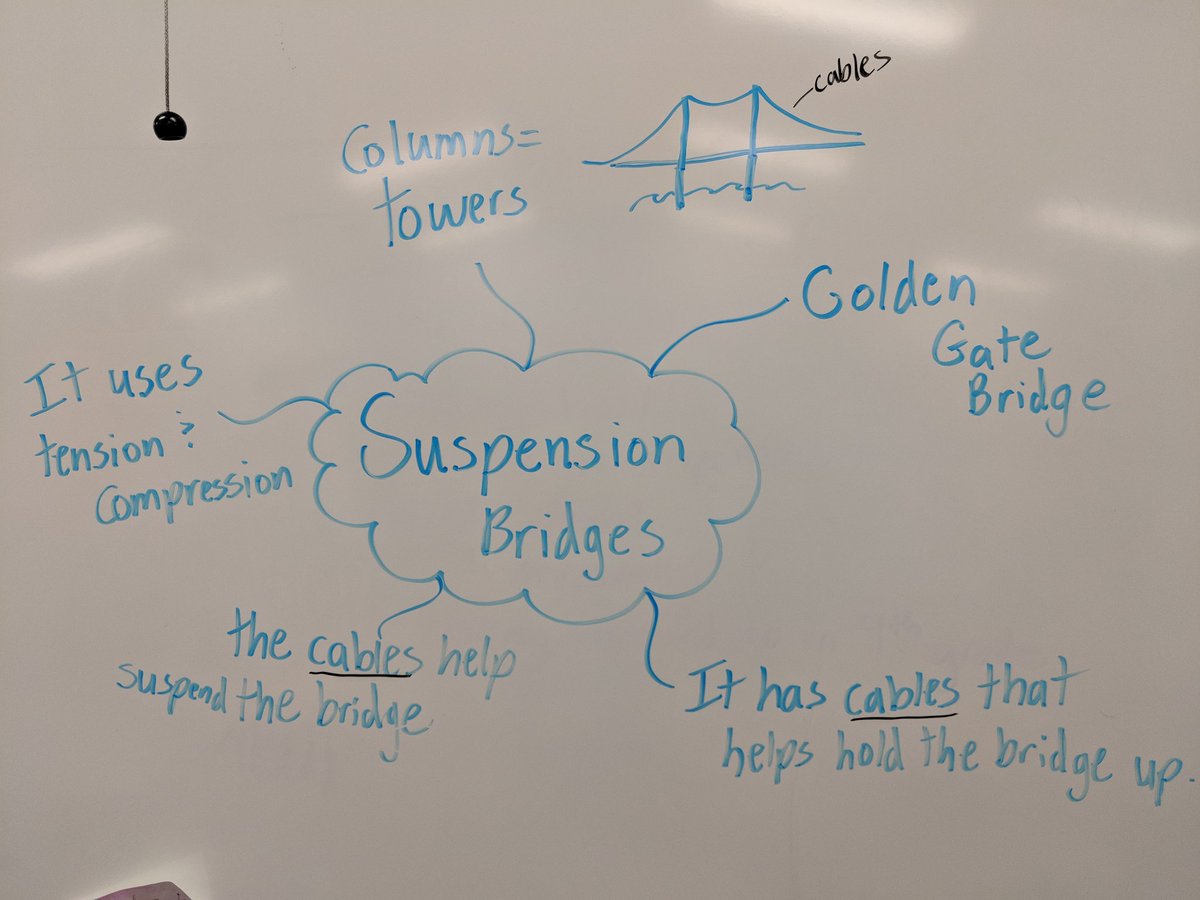 cables
Columns=
towers
Golden
Gate
Bridge
It uses
tension &
compression
Suspension
Bridges
the cables help
suspend the bridge
It has cables that
helps hold the bridge up.